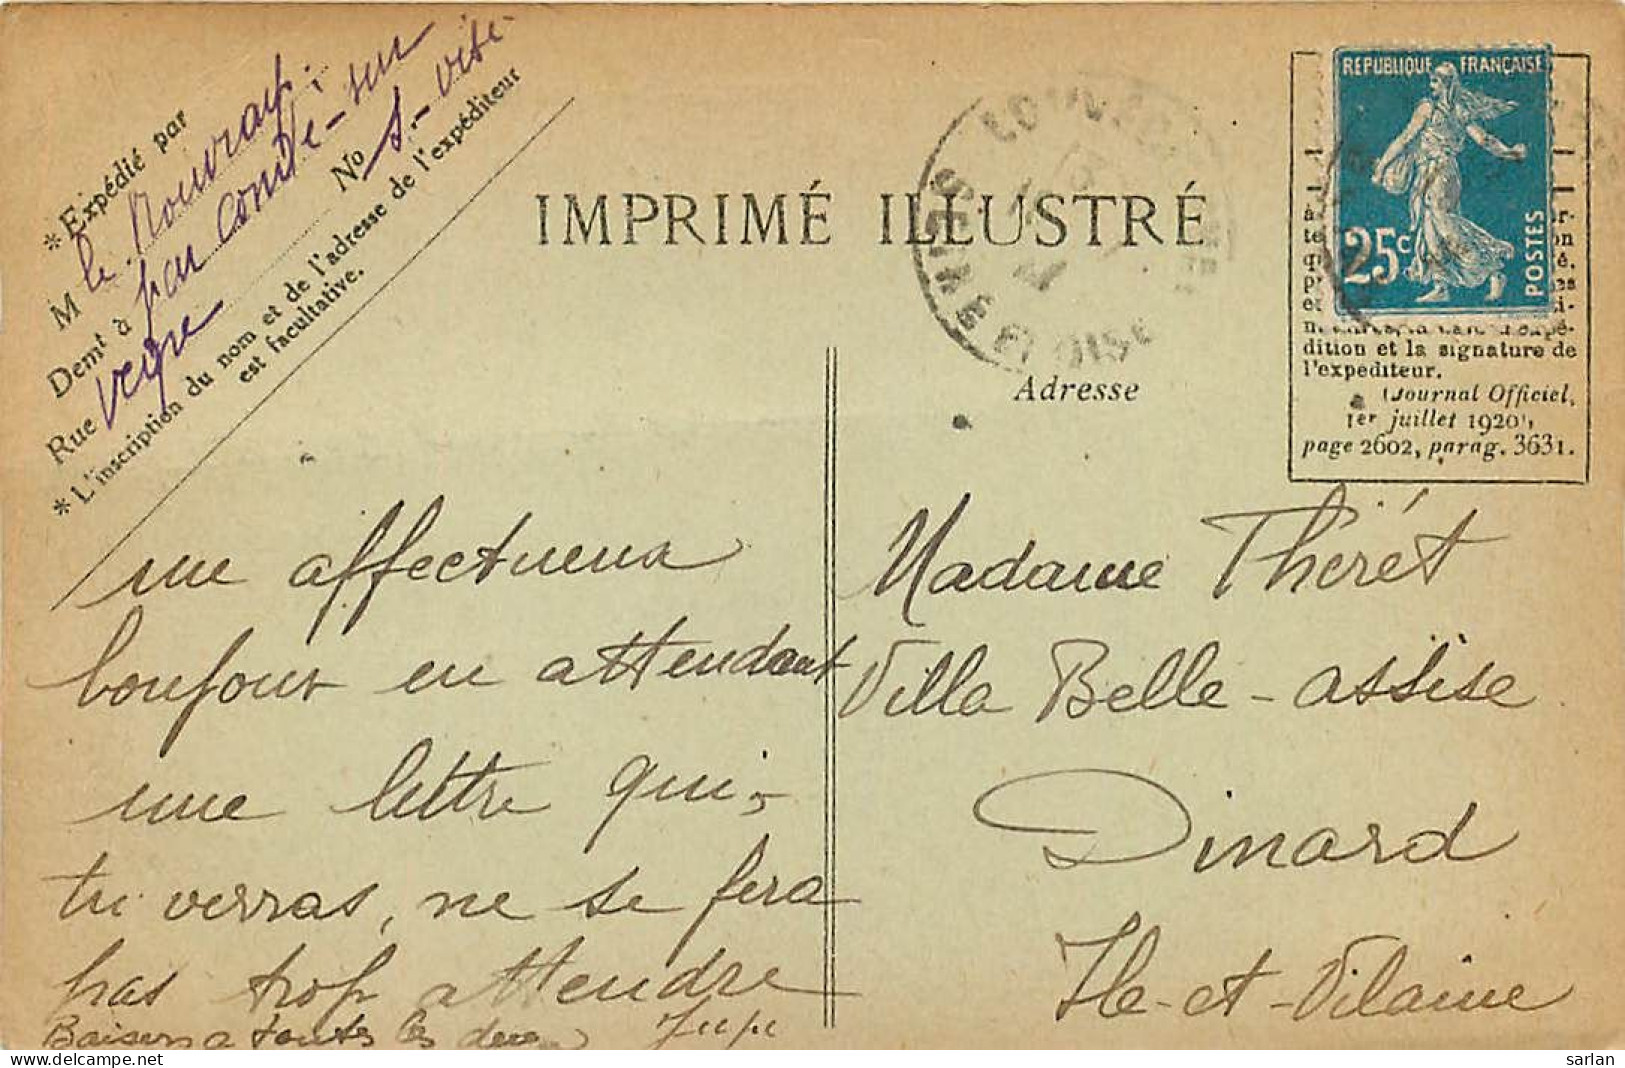 * Expédié par
M le Nouvrap :
Demt à par Condé-sur
Rue Vesgre No S.-Oise
* L'inscription du nom et de l'adresse de l'expéditeur
est facultative.
IMPRIMÉ ILLUSTRÉ
SEINE ET OISE
RÉPUBLIQUE FRANÇAISE
25c
POSTES
dition et la signature de
l'expéditeur.
(Journal Officiel,
1er juillet 1920),
page 2602, parag. 3631.
Adresse
un affectueux
bonjour en attendant
une lettre qui,
tu verras, ne se fera
pas trop attendre
Baisers a toutes les deux
Madame Thérét
Villa Belle-assise
Dinard
Ile-et-Vilaine
sarlan